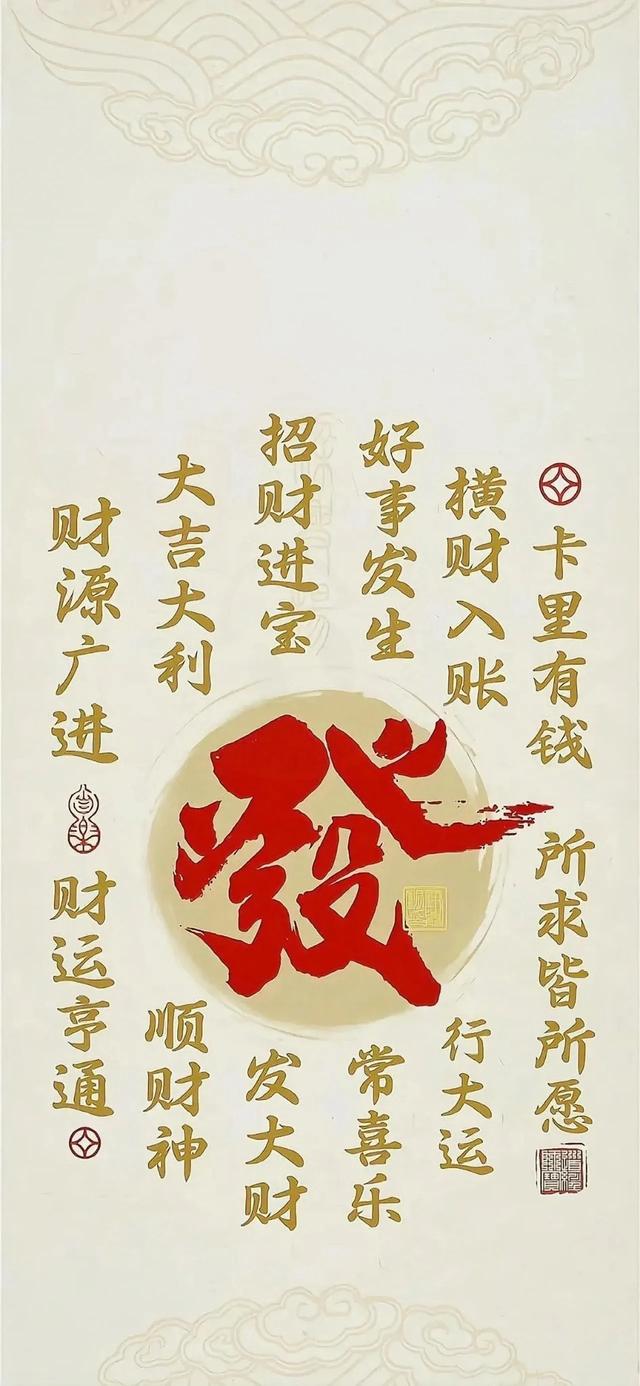 卡里有钱
所求皆所愿
横财入账
行大运
好事发生
常喜乐
招财进宝
发大财
大吉大利
顺财神
财源广进
财运亨通
發